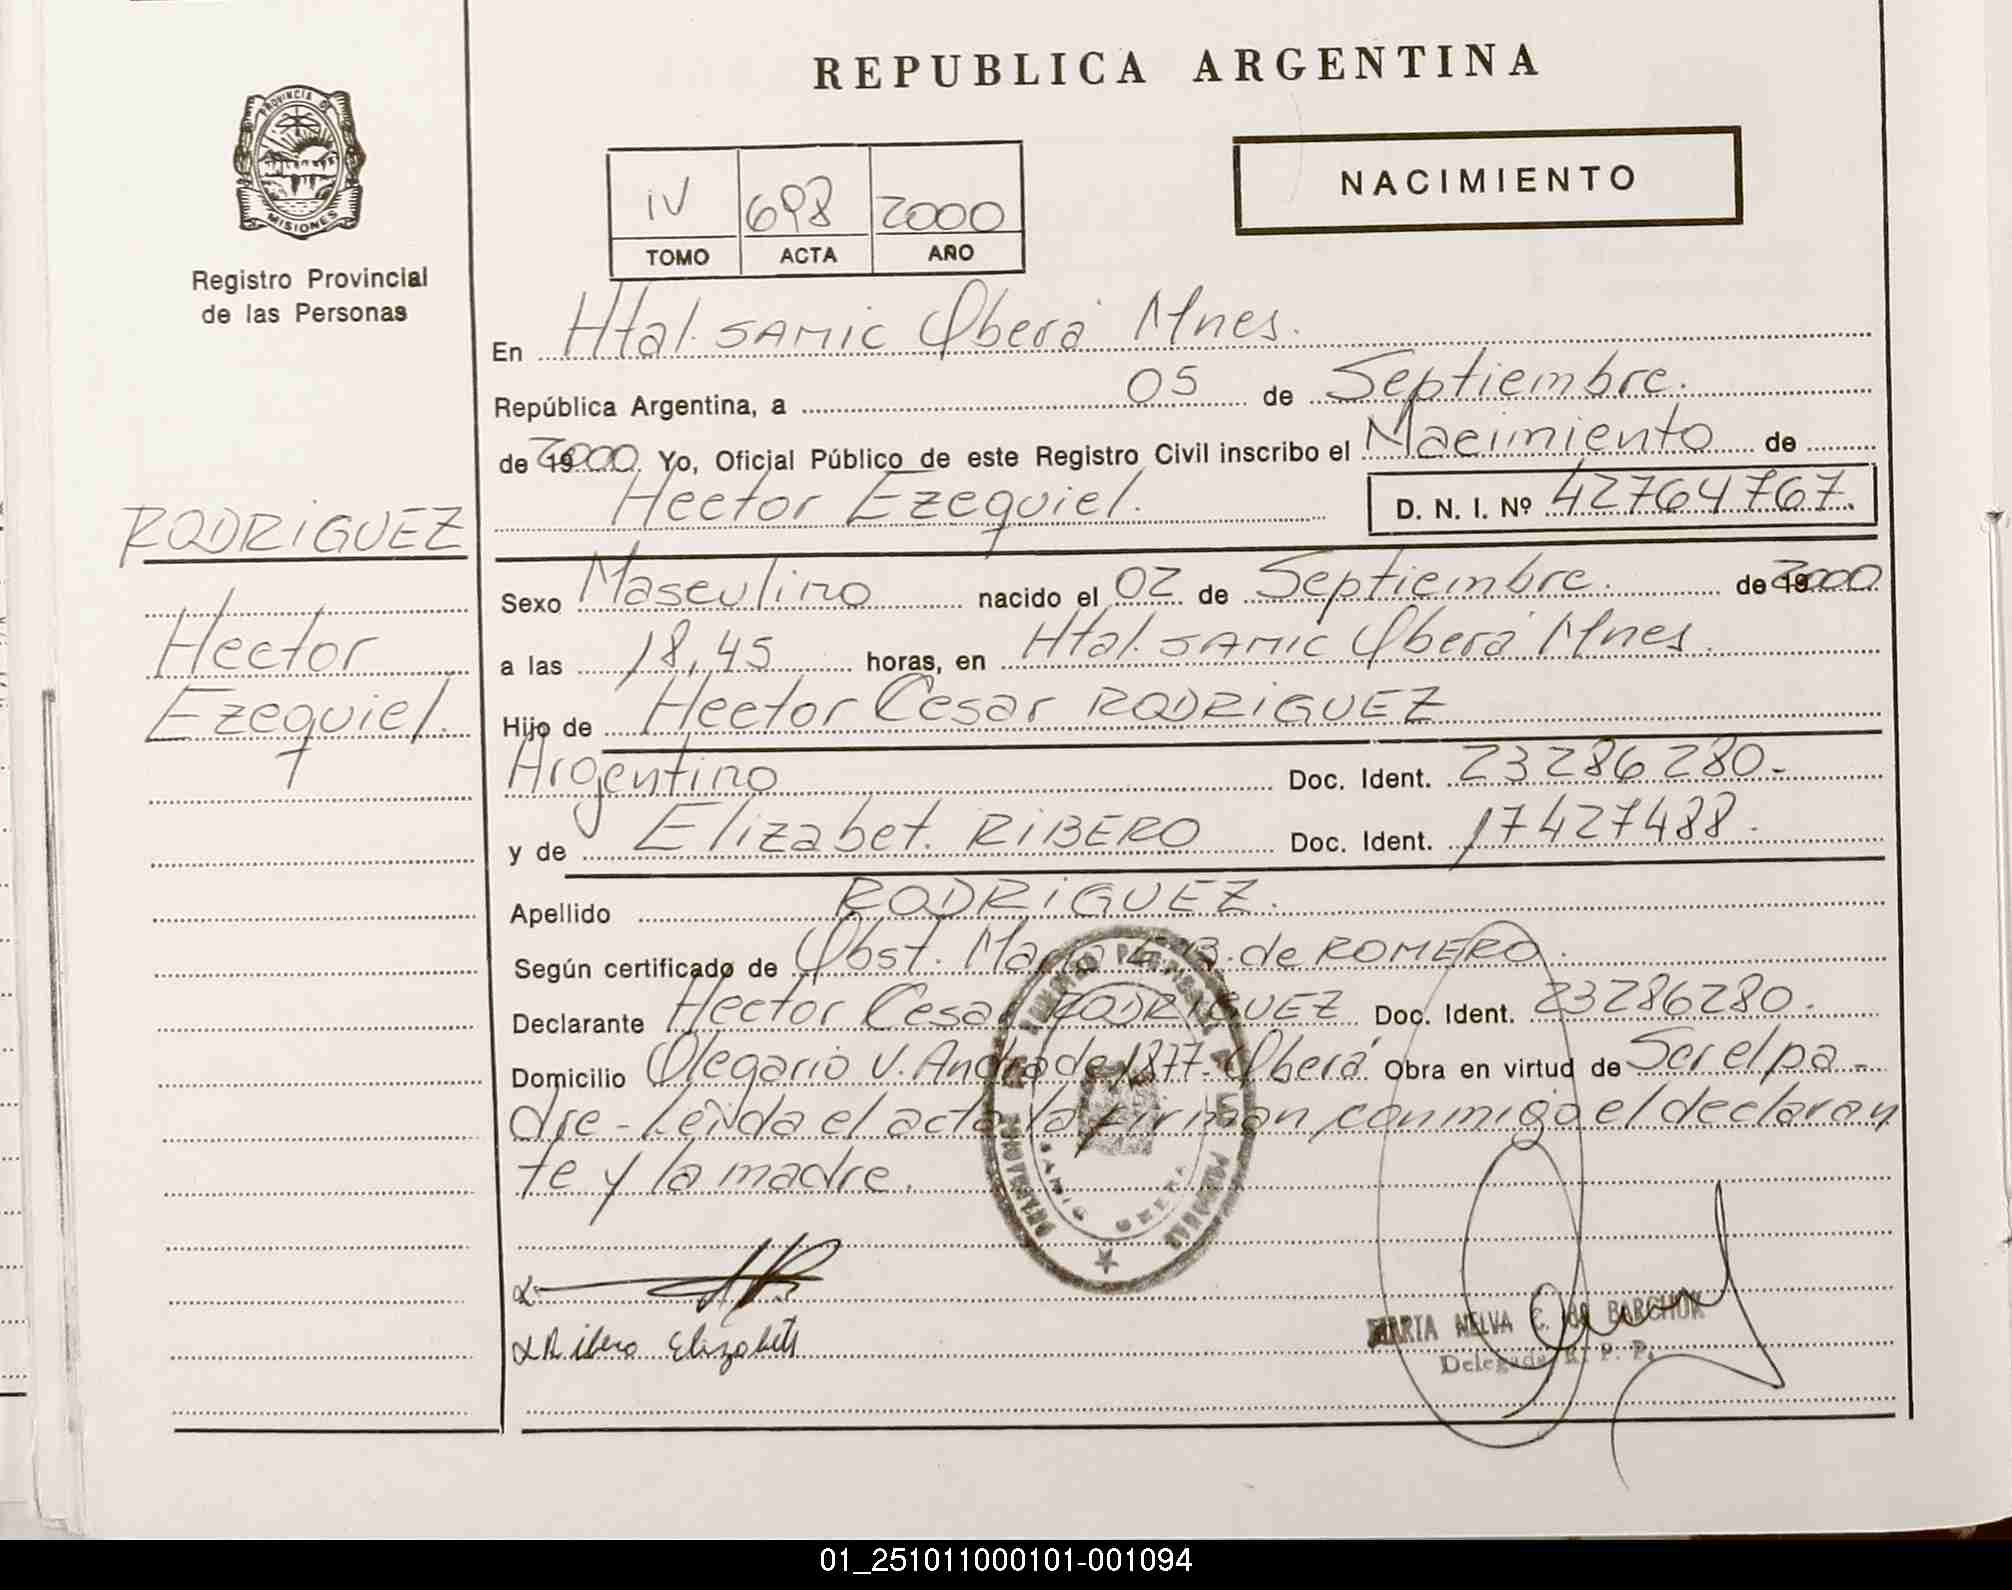 REPUBLICA ARGENTINA
PROVINCIA DE
MISIONES
Registro Provincial
de las Personas
iV 698 2000
TOMO ACTA AÑO
NACIMIENTO
En Htal. SAMIC Oberá Mnes.
República Argentina, a 05 de Septiembre.
de 2000 Yo, Oficial Público de este Registro Civil inscribo el Nacimiento de
Hector Ezequiel. D. N. I. Nº 42764767.
RODRIGUEZ
Hector
Ezequiel.
Sexo Masculino nacido el 02 de Septiembre. de 2000
a las 18,45 horas, en Htal. SAMIC Oberá Mnes.
Hijo de Hector Cesar RODRIGUEZ
Argentino Doc. Ident. 23286280.
y de Elizabet. RIBERO Doc. Ident. 17427488.
Apellido RODRIGUEZ.
Según certificado de Obst. Maria E. B. de ROMERO.
Declarante Hector Cesar RODRIGUEZ Doc. Ident. 23286280.
Domicilio Olegario V. Andrade 1877. Oberá Obra en virtud de Ser el pa-
dre - Leída el acta la firman conmigo el declaran
te y la madre.
Ribero Elizabeth
MARIA NELVA C. de BARCHUK
Delegada R. P. P.
01_251011000101-001094